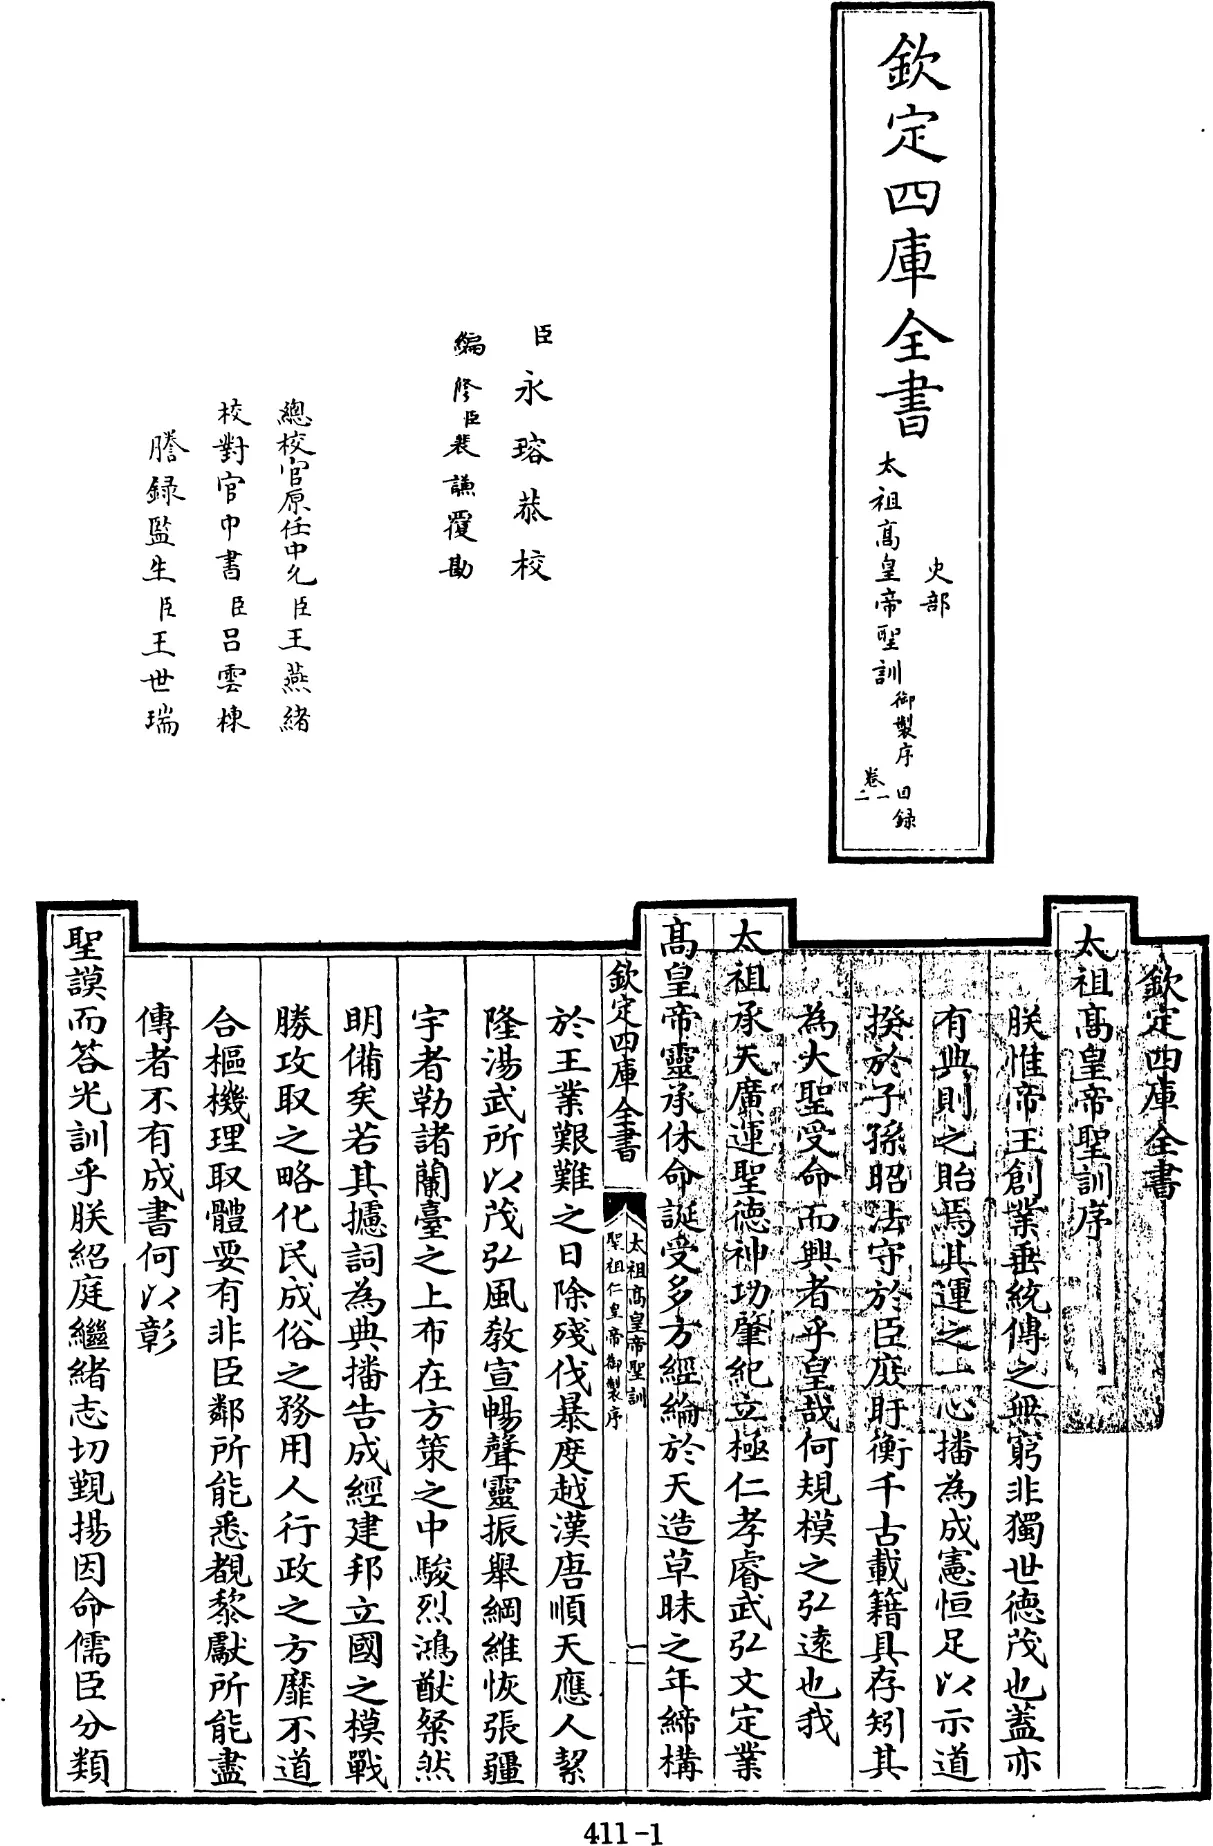 欽定四庫全書
史部
太祖高皇帝聖訓
御製序 目錄
卷一
二
臣永瑢恭校
編修臣裴謙覆勘
總校官原任中允臣王燕緒
校對官中書臣呂雲棟
謄録監生臣王世瑞
欽定四庫全書
太祖高皇帝聖訓序
朕惟帝王創業垂統傳之無窮非獨世德茂也蓋亦
有典則之貽焉其運之一心播為成憲恒足以示道
揆於子孫昭法守於臣庶盱衡千古載籍具存矧其
為大聖受命而興者乎皇哉何規模之弘遠也我
太祖承天廣運聖德神功肇紀立極仁孝睿武弘文定業
高皇帝靈承休命誕受多方經綸於天造草昧之年締構
欽定四庫全書
太祖高皇帝聖訓
聖祖仁皇帝御製序
一
於王業艱難之日除殘伐暴度越漢唐順天應人絜
隆湯武所以茂弘風教宣暢聲靈振舉綱維恢張疆
宇者勒諸蘭臺之上布在方策之中駿烈鴻猷粲然
明備矣若其攄詞為典播告成經建邦立國之模戰
勝攻取之略化民成俗之務用人行政之方靡不道
合樞機理取體要有非臣鄰所能悉覩黎獻所能盡
傳者不有成書何以彰
聖謨而答光訓乎朕紹庭繼緒志切覲揚因命儒臣分類
411-1